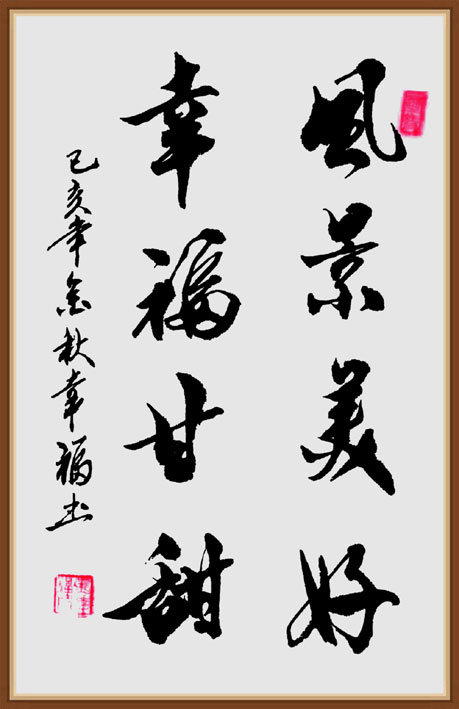 風景美好
幸福甘甜
己亥年金秋幸福书